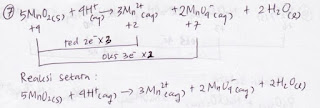 ⑦ 5MnO₂(s) + 4H⁺(aq) → 3Mn²⁺(aq) + 2MnO₄⁻(aq) + 2H₂O(l)
+4 +2 +7
red 2e⁻ × 3
oks 3e⁻ × 2
Reaksi setara :
5MnO₂(s) + 4H⁺(aq) → 3Mn²⁺(aq) + 2MnO₄⁻(aq) + 2H₂O(l)